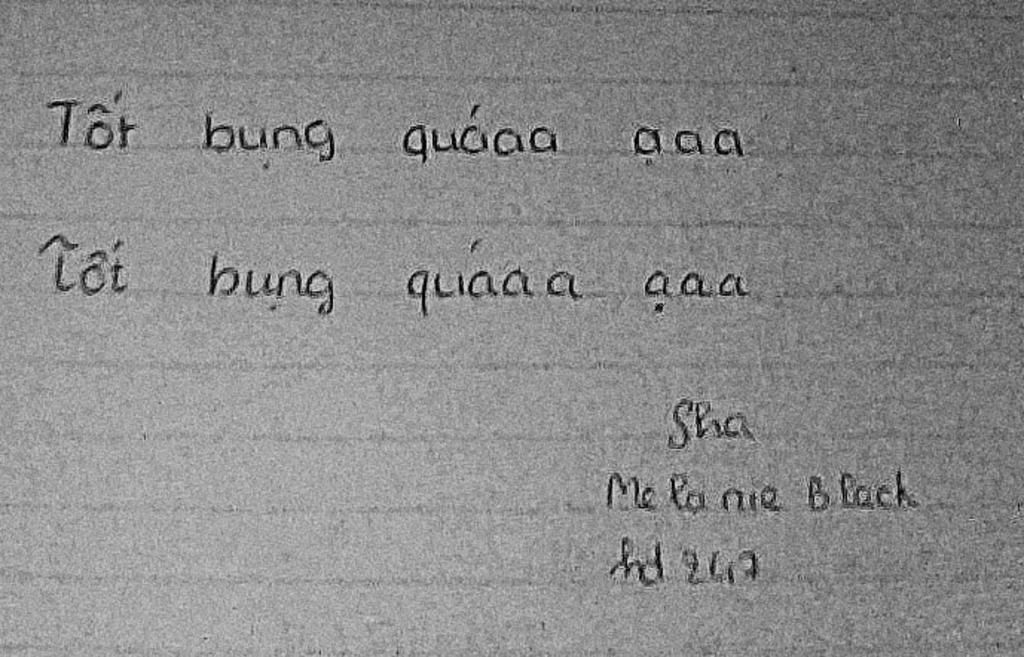 Tốt bụng quáaa ạaa
Tốt bụng quáaa ạaa
Sha
Melanie Black
hd 247